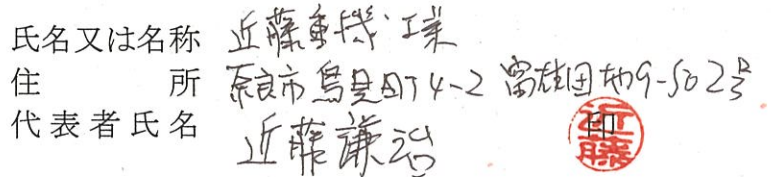 氏名又は名称 近藤重機工業
住 所 奈良市鳥見町4-2 富雄団地9-502号
代表者氏名 近藤謙治 印 近藤